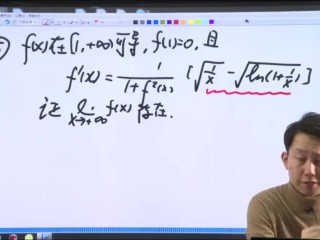 f(x)在[1,+∞)可导, f(1)=0, 且
f'(x) = 1/(1+f²(x)) [√(1/x) - √(ln(1+1/x))]
证 lim x→+∞ f(x) 存在.